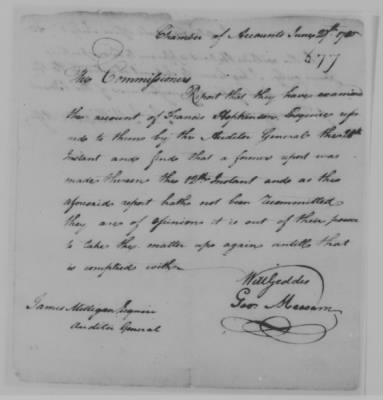 Chamber of Accounts June 27th 1780
577
The Commissioners
Report that they have examined
the account of Francis Hopkinson Esquire
to them by the Auditor General the 26th
Instant and find that a former report was
made thereon the 12th Instant and as the
aforesaid report hath not been recommitted
they are of opinion it is out of their power
to take the matter up again untill that
is complied with
Will Geddes
James Milligan Esquire
Auditor General
Geo.